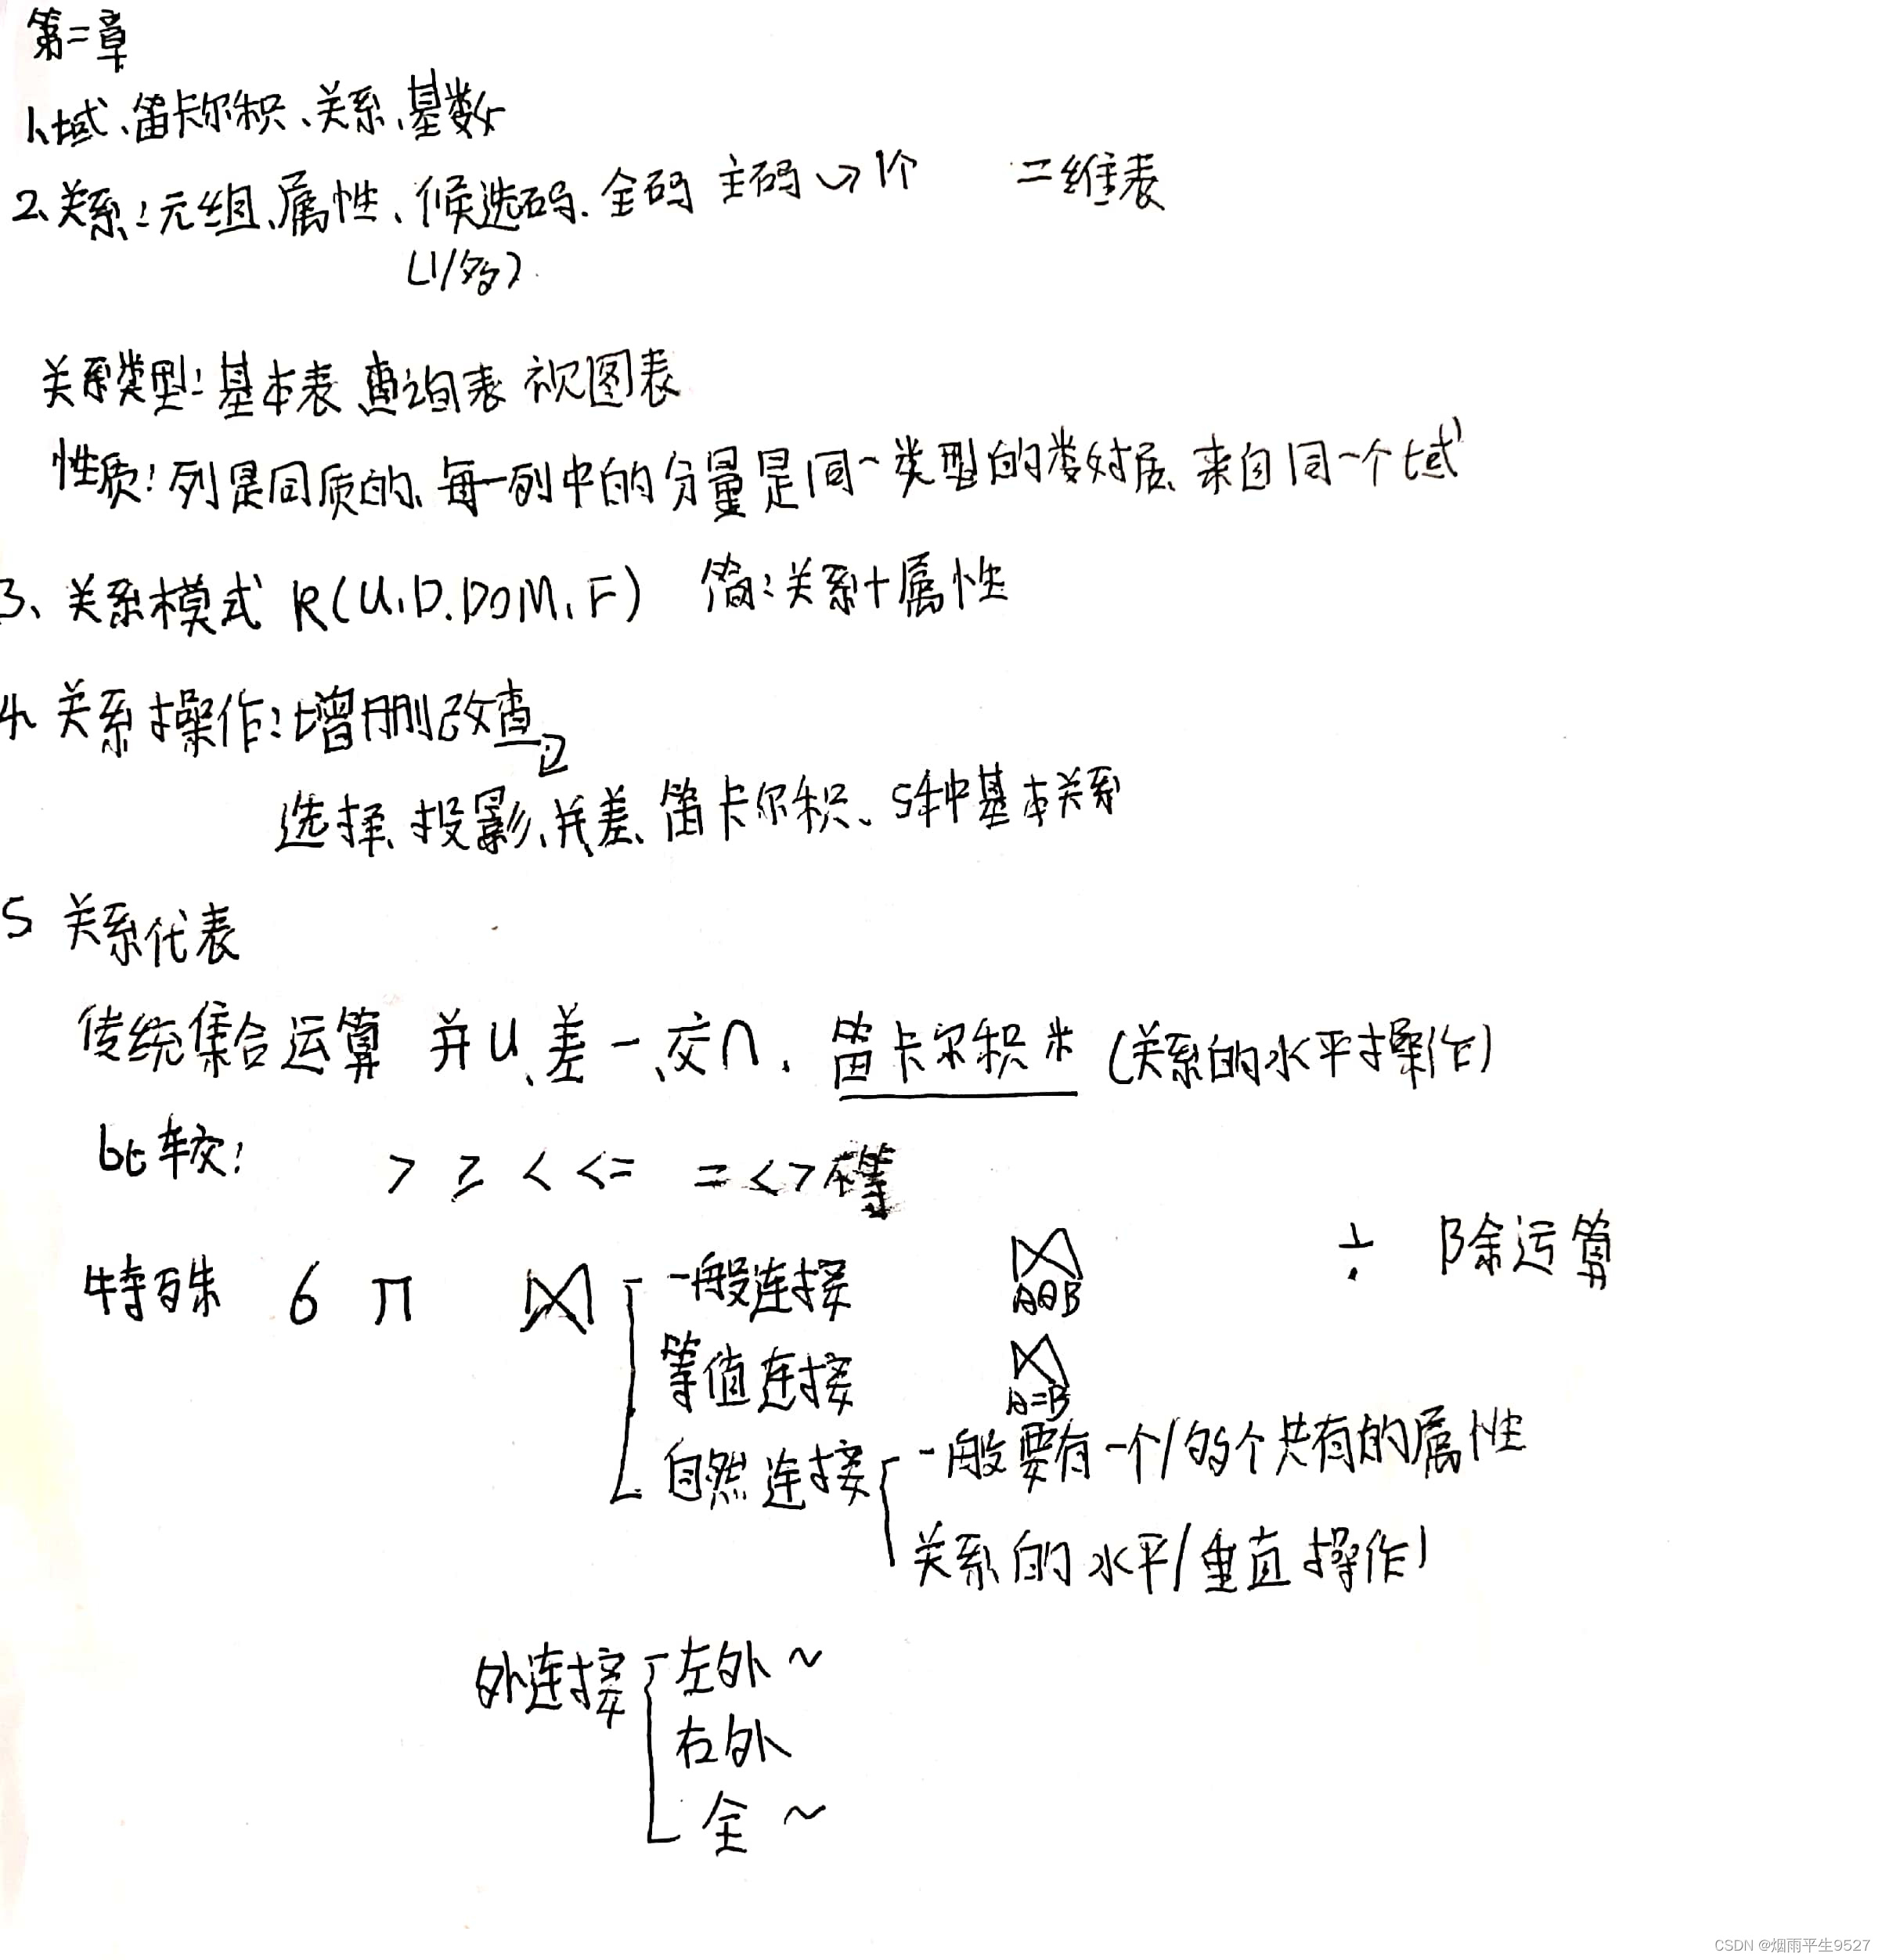 第二章
1、域、笛卡尔积、关系、基数
2、关系：元组、属性、候选码、全码 主码→1个 二维表
(1/多)
关系类型：基本表 查询表 视图表
性质：列是同质的、每一列中的分量是同一类型的数据、来自同一个域
3、关系模式 R(U,D,DOM,F) 简：关系+属性
4、关系操作：增删改查
选择、投影、并、差、笛卡尔积、5种基本关系
5 关系代表
传统集合运算 并∪、差－、交∩、笛卡尔积 (关系的水平操作)
比较： > ≥ < <= = <> 不等
特殊 6 π ⋈ 一般连接 ⋈ AθB ÷ 除运算
等值连接 ⋈ A=B
自然连接 一般要有一个/多个共有的属性
关系的水平/垂直操作)
外连接 左外~
右外
全~
CSDN @烟雨平生9527